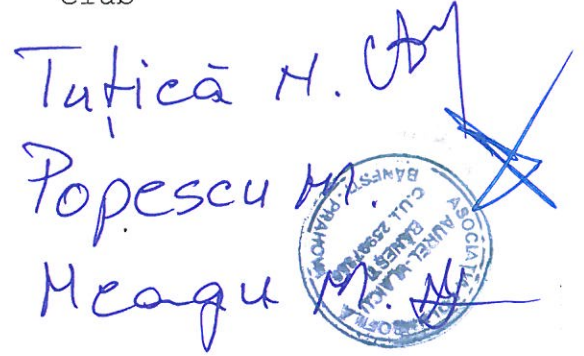 Club
Tuțică M.
Popescu M.
Neagu M.
ASOCIAȚIA
AUREL VLAICU
BĂNEȘTI
C.U.I.
BĂNEȘTI PRAHOVA